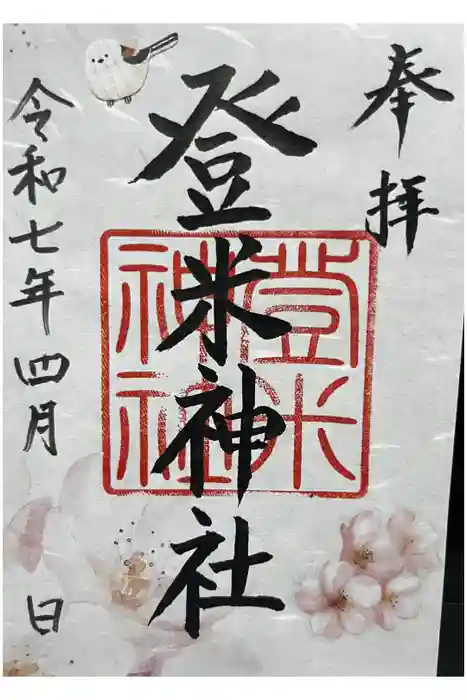 奉拝
登米神社
登米
神社
令和七年四月 日